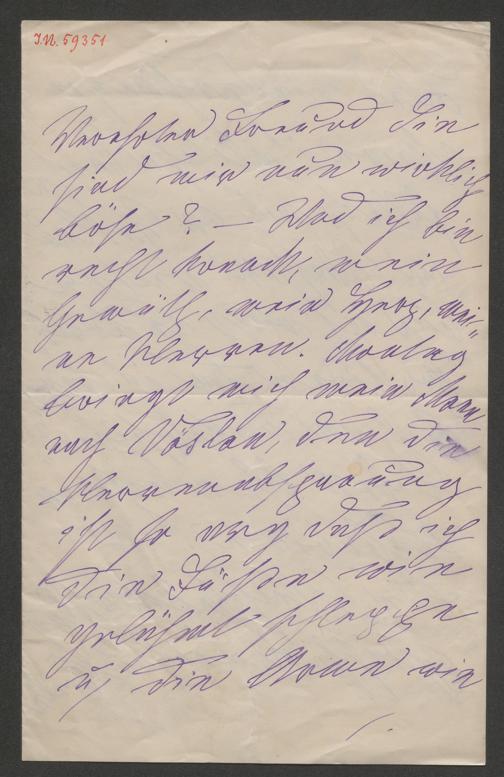 I.N. 59351
Verehrter Freund Sie
sind mir nun wirklich
böse? — Und ich bin
recht krank, mein
Gemüth, mein Herz, mei-
ne Nerven. Montag
bringt mich mein Mann
nach Vöslau, denn die
Nervenabspannung
ist so arg daß ich
die Füße wie
gelähmt schleppe
u, die Arme wie